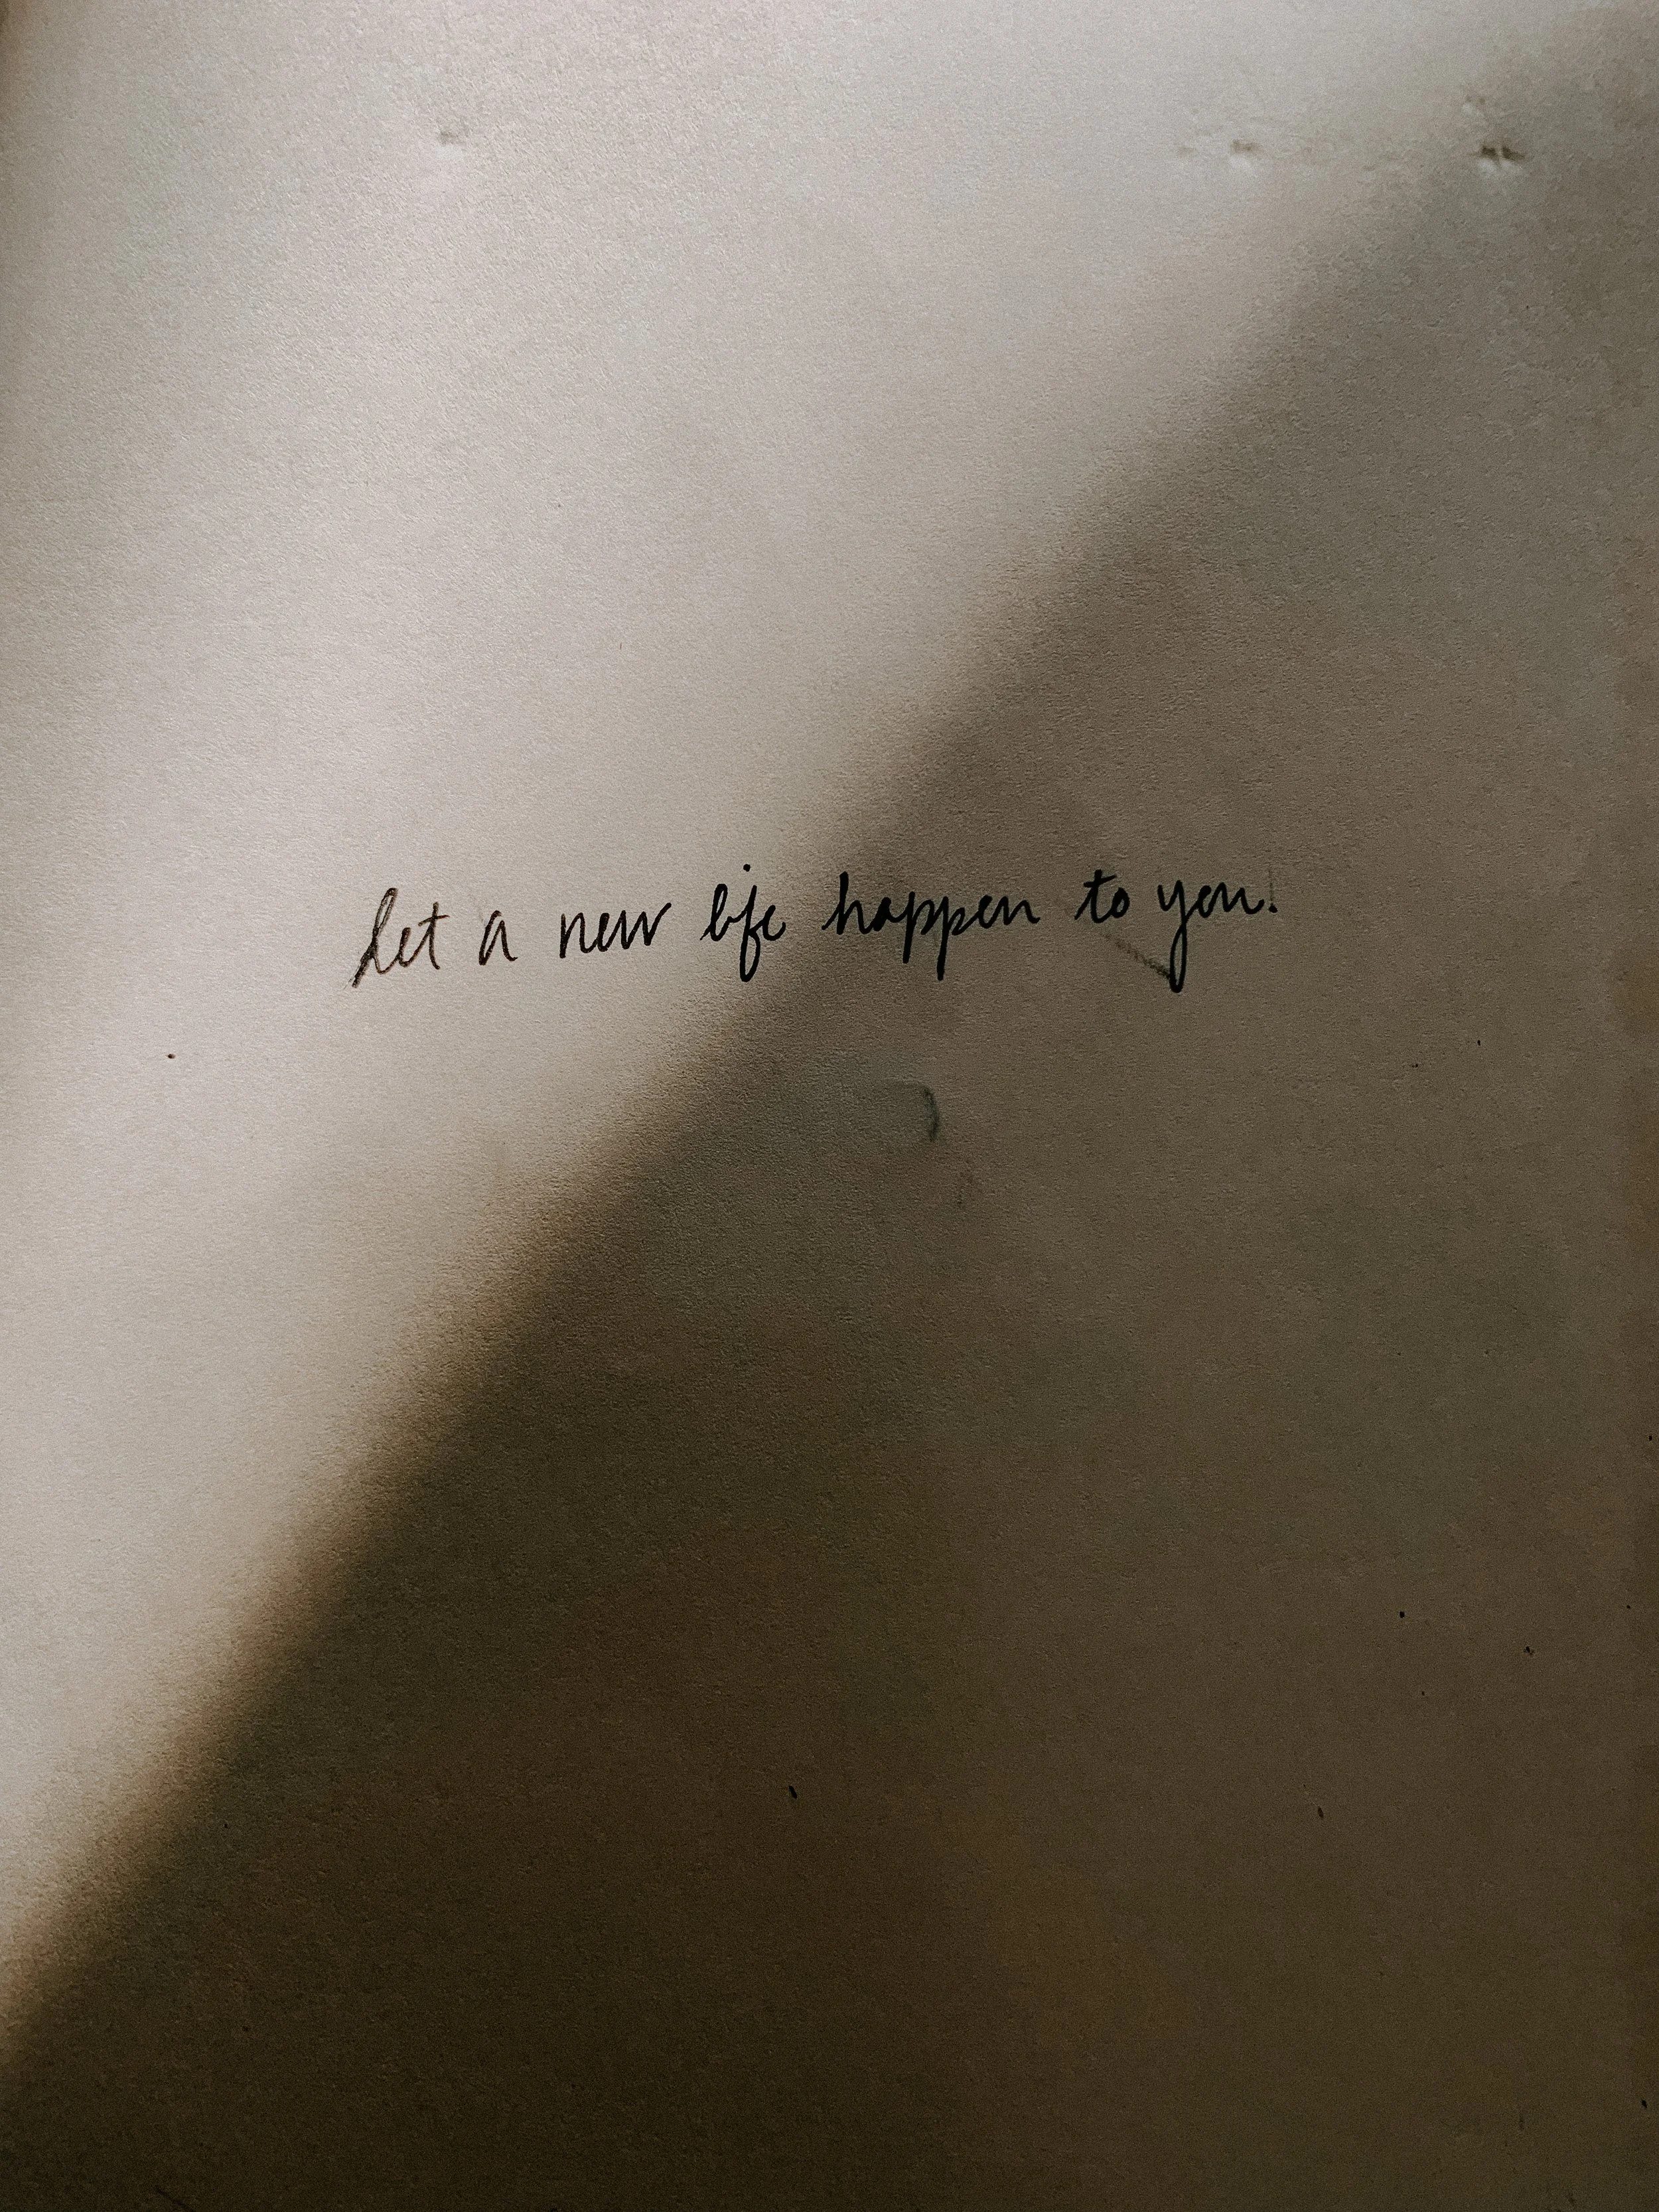 Let a new life happen to you.